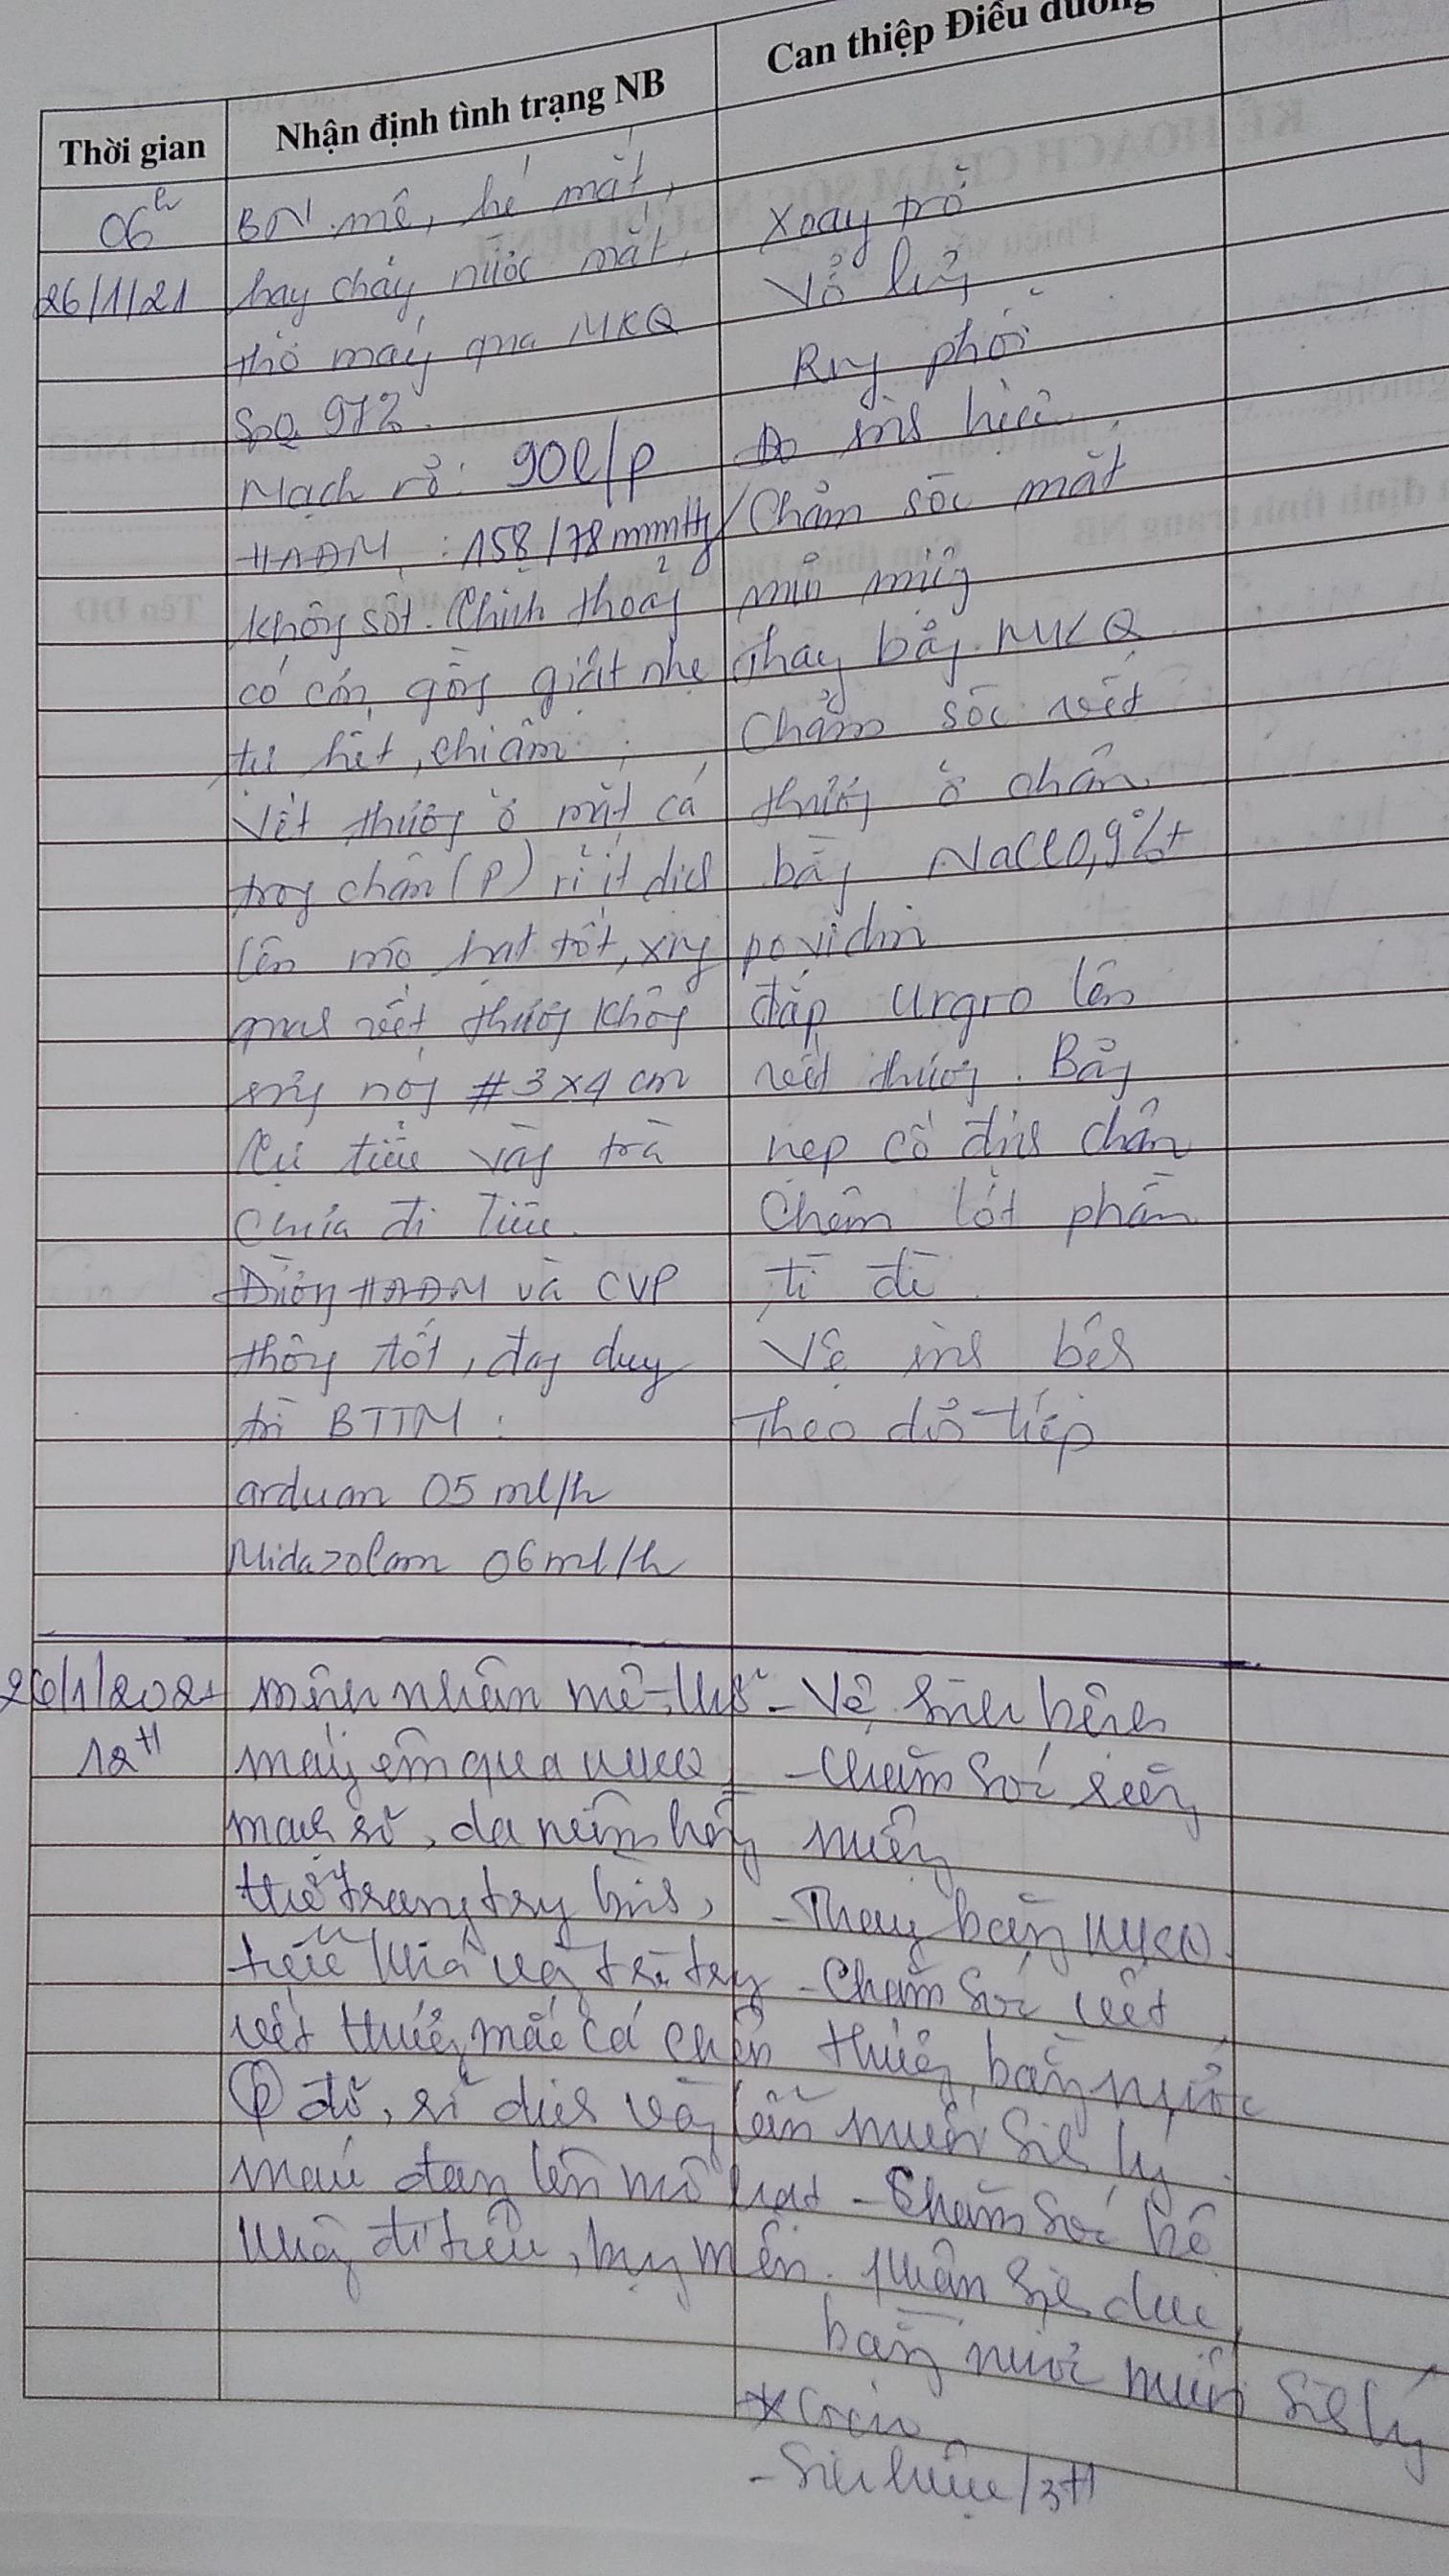 Thời gian
Nhận định tình trạng NB
Can thiệp Điều dưỡng
06h
26/1/21
BN mê, hé mắt,
hay chảy nước mắt,
thở máy qua MKQ
Mạch rõ: 90l/p
HAĐM: 158/78mmHg
không sốt. Chỉnh thoảng
có cơn gồng giật nhẹ
tự hết, chi ấm
Vết thương ở mắt cá
trong chân (P) rỉ ít dịch
lên mô hạt tốt, xung
quanh vết thương không
sưng nóng #3x4cm
tiểu vàng trà
Chưa đi tiêu.
Đường HAĐM và CVP
thông tốt, đang duy
trì BTTM:
arduan 05 ml/h
Midazolam 06ml/h
Xoay trở
Vỗ lưng
Rung phổi
Đo sinh hiệu
Chăm sóc mắt
mũi miệng
Thay băng MKQ
Chăm sóc vết
thương ở chân
bằng NaCl 0,9% +
povidin
đắp Urgro lên
vết thương. Băng
nẹp cố định chân
Chêm lót phần
tì đè
Vệ sinh bệnh
Theo dõi tiếp
26/1/2021
12H
nhân mê, thở
máy êm qua MKQ
mạch rõ, da niêm hồng
tiểu vàng trà trong
vết thương mắt cá chân
(P) đỏ, rỉ dịch vàng lẫn
máu đang lên mô hạt
không đi tiêu, bụng mềm.
- Vệ sinh bệnh
- Chăm sóc răng
miệng
- Thay băng MKQ
- Chăm sóc vết
thương bằng nước
muối sinh lý
- Chăm sóc bộ
phận sinh dục
bằng nước muối sinh lý
- Sinh hiệu/3H